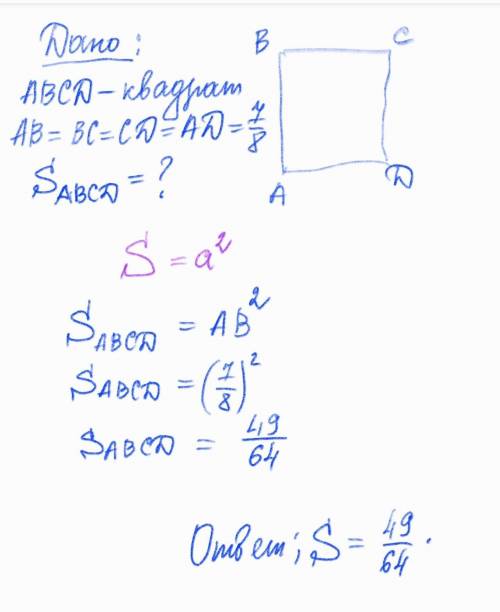 Дано:
ABCD - квадрат
AB = BC = CD = AD = 7/8
S_ABCD = ?
B
C
A
D
S = a²
S_ABCD = AB²
S_ABCD = (7/8)²
S_ABCD = 49/64
Ответ; S = 49/64.